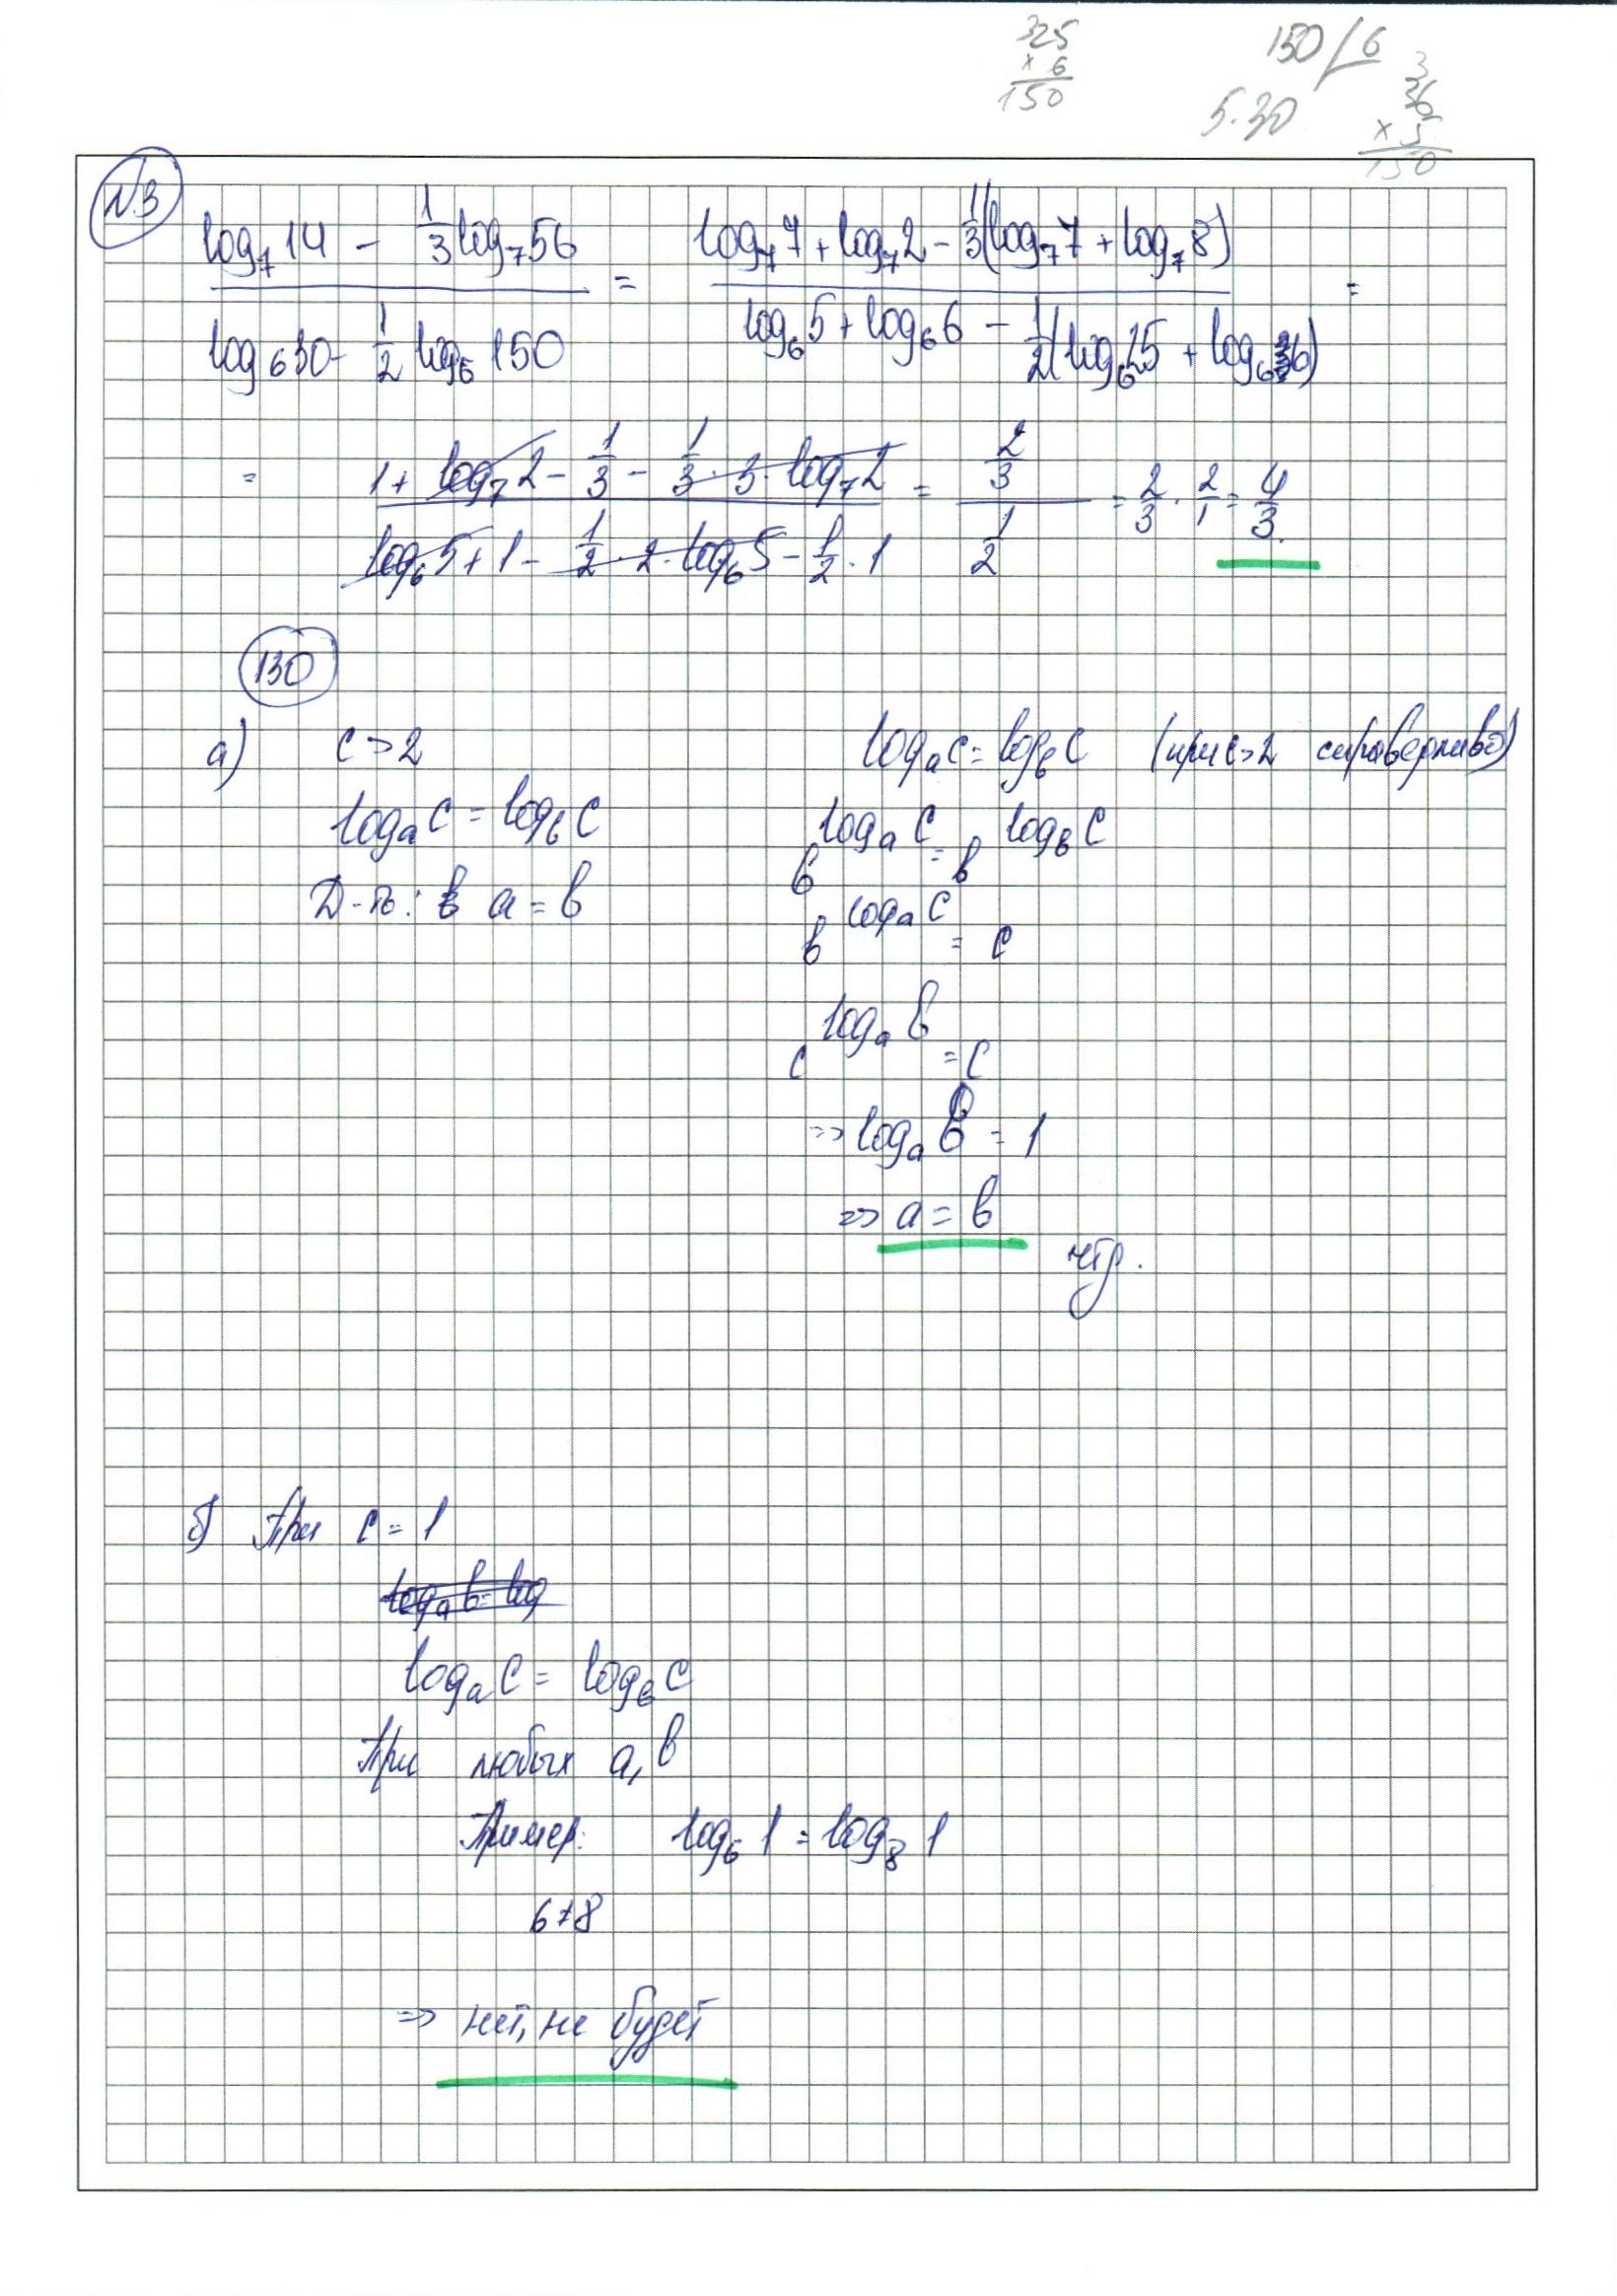 325
× 6
150
150 / 6
5·30
3
36
× 5
150
N3
(log₇14 − 1/3 log₇56) / (log₆30 − 1/2 log₆150) = (log₇7 + log₇2 − 1/3(log₇7 + log₇8)) / (log₆5 + log₆6 − 1/2(log₆25 + log₆6)) =
= (1 + log₇2 − 1/3 − 1/3 · 3 · log₇2) / (log₆5 + 1 − 1/2 · 2 · log₆5 − 1/2 · 1) = (2/3) / (1/2) = 2/3 · 2/1 = 4/3.
130
а) c > 2
logₐc = log_b c
Д-ть: a = b
logₐc = log_b c (при c>2 справедливо)
b^(logₐc) = b^(log_b c)
b^(logₐc) = c
c^(logₐb) = c
=> logₐb = 1
=> a = b
чтд.
б) При c = 1
logₐc = log_b c
При любых a, b
Пример: log₆1 = log₈1
6≠8
=> нет, не будет